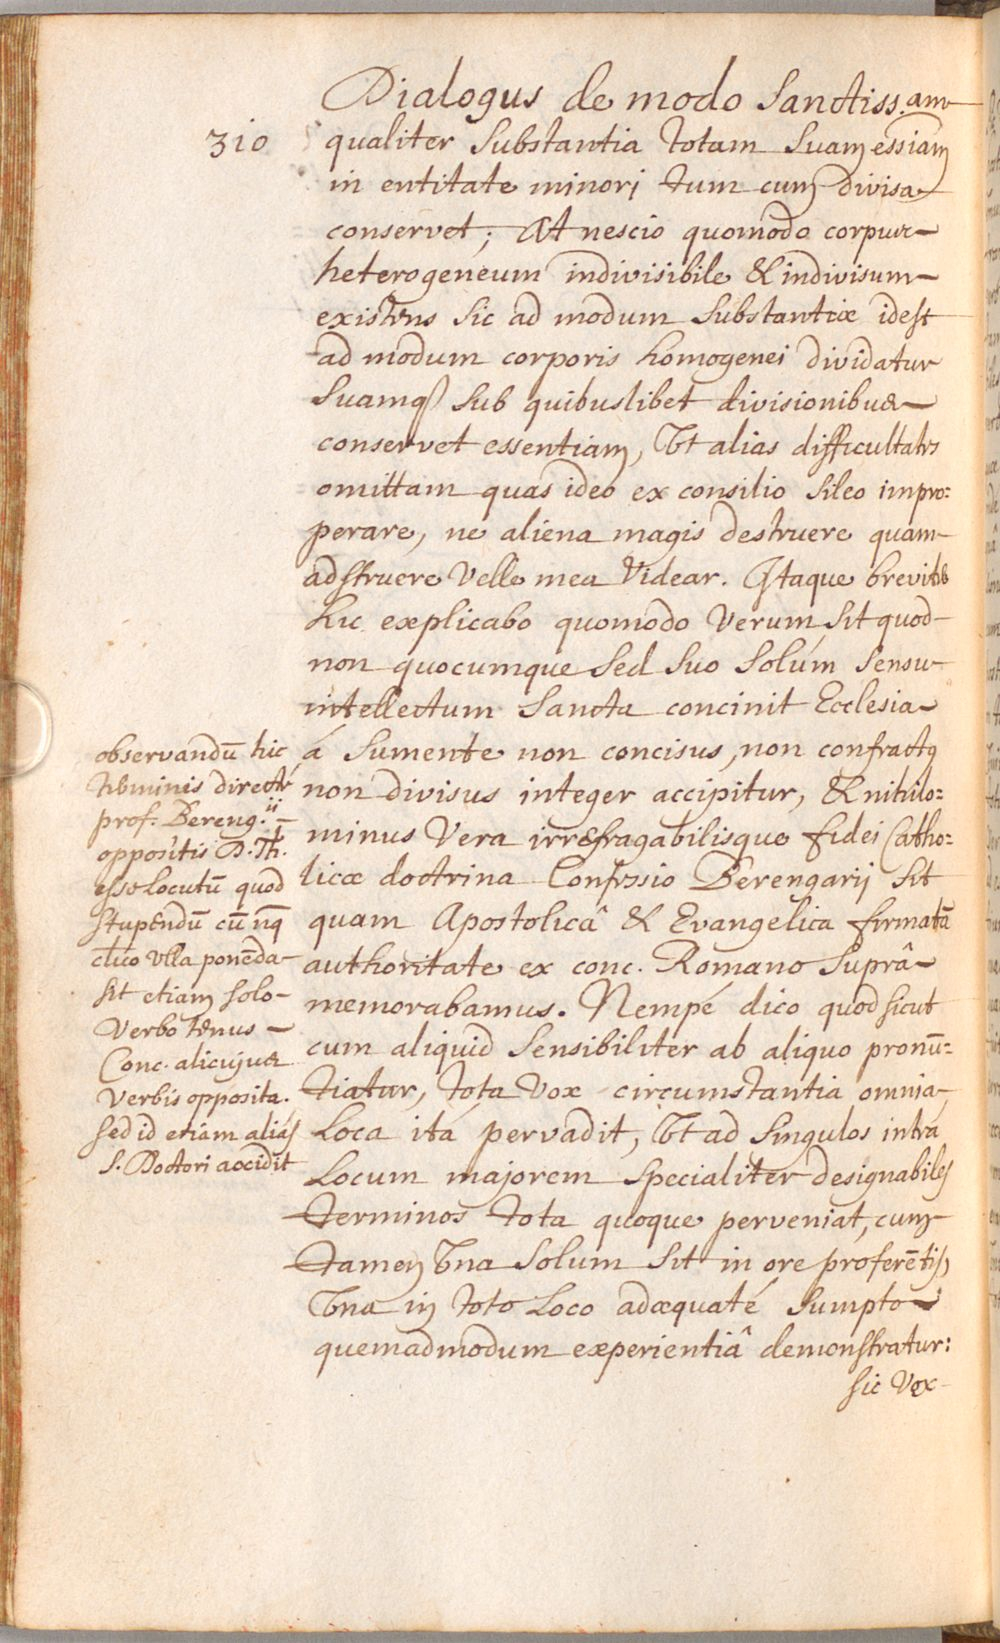 Dialogus de modo Sanctiss. am
310
qualiter Substantia totam Suam essiam
in entitate minori tum cum divisa
conservet; At nescio quomodo corpus
heterogeneum indivisibile & indivisum
existens sic ad modum Substantiæ idest
ad modum corporis homogenei dividatur
Suamq sub quibuslibet divisionibus
conservet essentiam, Vt alias difficultates
omittam quas ideo ex consilio sileo impro=
perare, ne aliena magis destruere quam
adstruere Velle mea Videar. Itaque breviter
hic explicabo quomodo Verum sit quod
non quocumque sed suo solúm sensu
intellectum Sancta concinit Ecclesia
á Sumente non concisus, non confractq
non divisus integer accipitur, & nihilo=
minus Vera irrefragabilisque fidei Catho=
licæ doctrina Confessio Berengarij sit
quam Apostolicâ & Evangelica firmatā
authoritate ex conc. Romano Suprâ
memorabamus. Nempé dico quod sicut
cum aliquid Sensibiliter ab aliquo pronū=
tiatur, tota Vox circumstantia omnia
Loca itá pervadit, Vt ad singulos intra
Locum majorem specialiter designabiles
terminos tota quoque perveniat, cum
tamen Vna Solum sit in ore proferētis,
Vna in toto Loco adæquaté sumpto
quemadmodum experientiâ demonstratur:
sic Vox
observandū hic
terminis directe
prof. Bereng.ii
oppositis D. Th.
esse locutū quod
stupendū cū nq
ctio Vlla ponēda
sit etiam solo
Verbo tenus
Conc. alicujus
Verbis opposita.
sed id etiam aliás
S. Doctori accidit